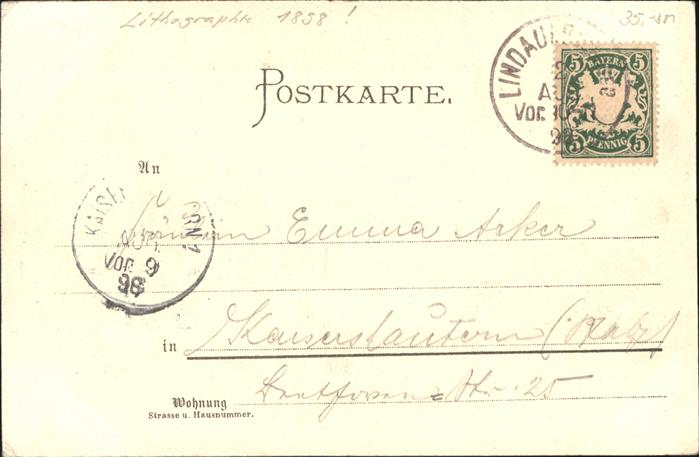 Lithographie 1898!
35,-
POSTKARTE.
LINDAU
AUG
Vor. 10-11
98
5 BAYERN 5
5 PFENNIG 5
An
Fräulein Emma Acker
KAISE RN 1
AUG.
Vor. 9
98
in Kaiserslautern (Pfalz)
Str. 25
Wohnung
Strasse u. Hausnummer.